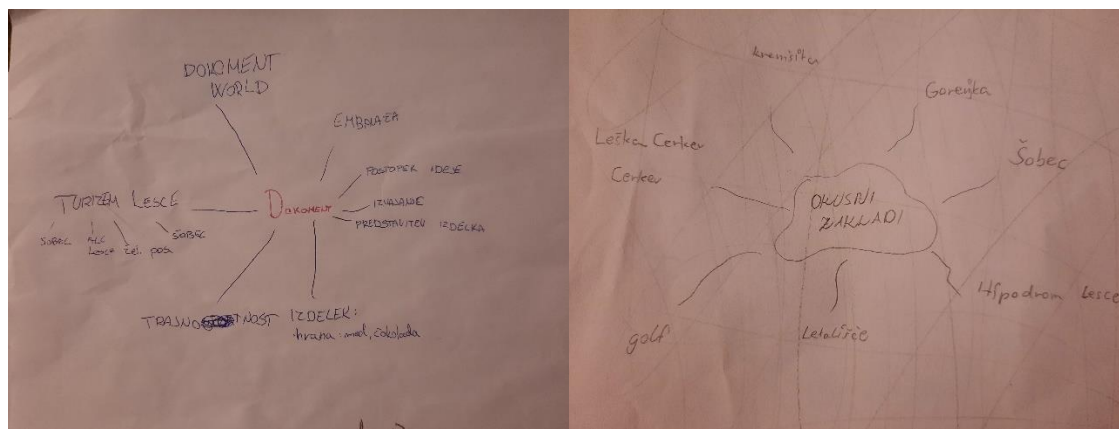 DOKUMENT
WORLD
EMBALAŽA
POSTOPEK IDEJE
IZVAJANJE
PREDSTAVITEV IZDELKA
DOKUMENT
TURIZEM LESCE
ŠOBEC
ALC
LESCE
žel. posa
ŠOBEC
TRAJNOSTNOST
IZDELEK:
hrana: med, čokolada
kremšita
Gorenjka
Leška Cerkev
Cerkev
Šobec
OKUSNI
ZAKLADI
Hipodrom Lesce
Letališče
golf